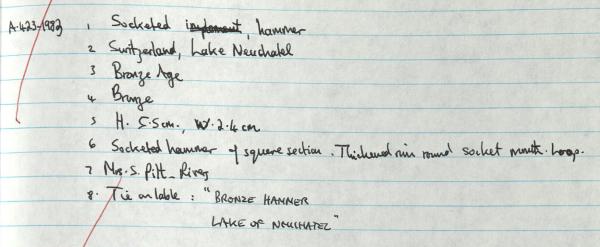 A.423-1982 1 Socketed implement, hammer
2 Switzerland, Lake Neuchatel
3 Bronze Age
4 Bronze
5 H. 5.5cm., W. 2.4 cm
6 Socketed hammer of square section. Thickened rim round socket mouth. Loop.
7 Mrs. S. Pitt-Rivers
8. Tie on lable : "BRONZE HAMMER
LAKE OF NEUCHATEL"